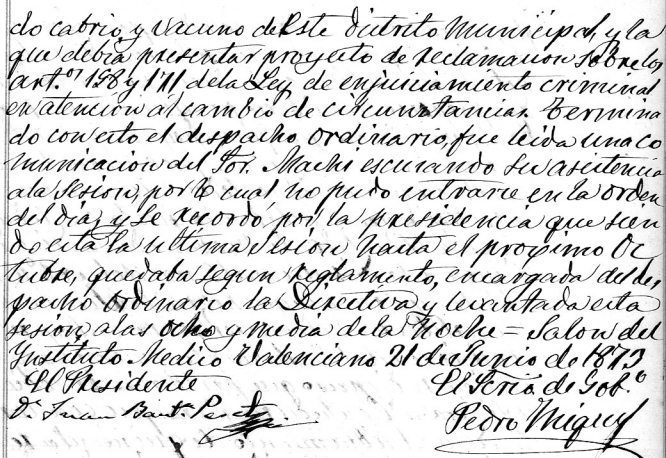 do cabrio y vacuno de este distrito Municipal, y la
que debia presentar proyecto de reclamacion sobre los
art.os 158 y 171 de la Ley de enjuiciamiento criminal
en atencion al cambio de circunstancias. Termina
do con esto el despacho ordinario, fue leida una co
municacion del Sor. Machi escusando su asistencia
a la sesion, por lo cual no pudo entrarse en la orden
del dia, y se recordó por la presidencia que sien
do esta la ultima sesion hasta el proximo Oc
tubre, quedaba segun reglamento, encargada del des
pacho ordinario la Directiva y levantada esta
sesion, a las ocho y media de la Noche = Salon del
Instituto Medico Valenciano 21 de Junio de 1873
El Presidente El Srio. de Gob.o
Dr Juan Baut.
Pedro Miguel